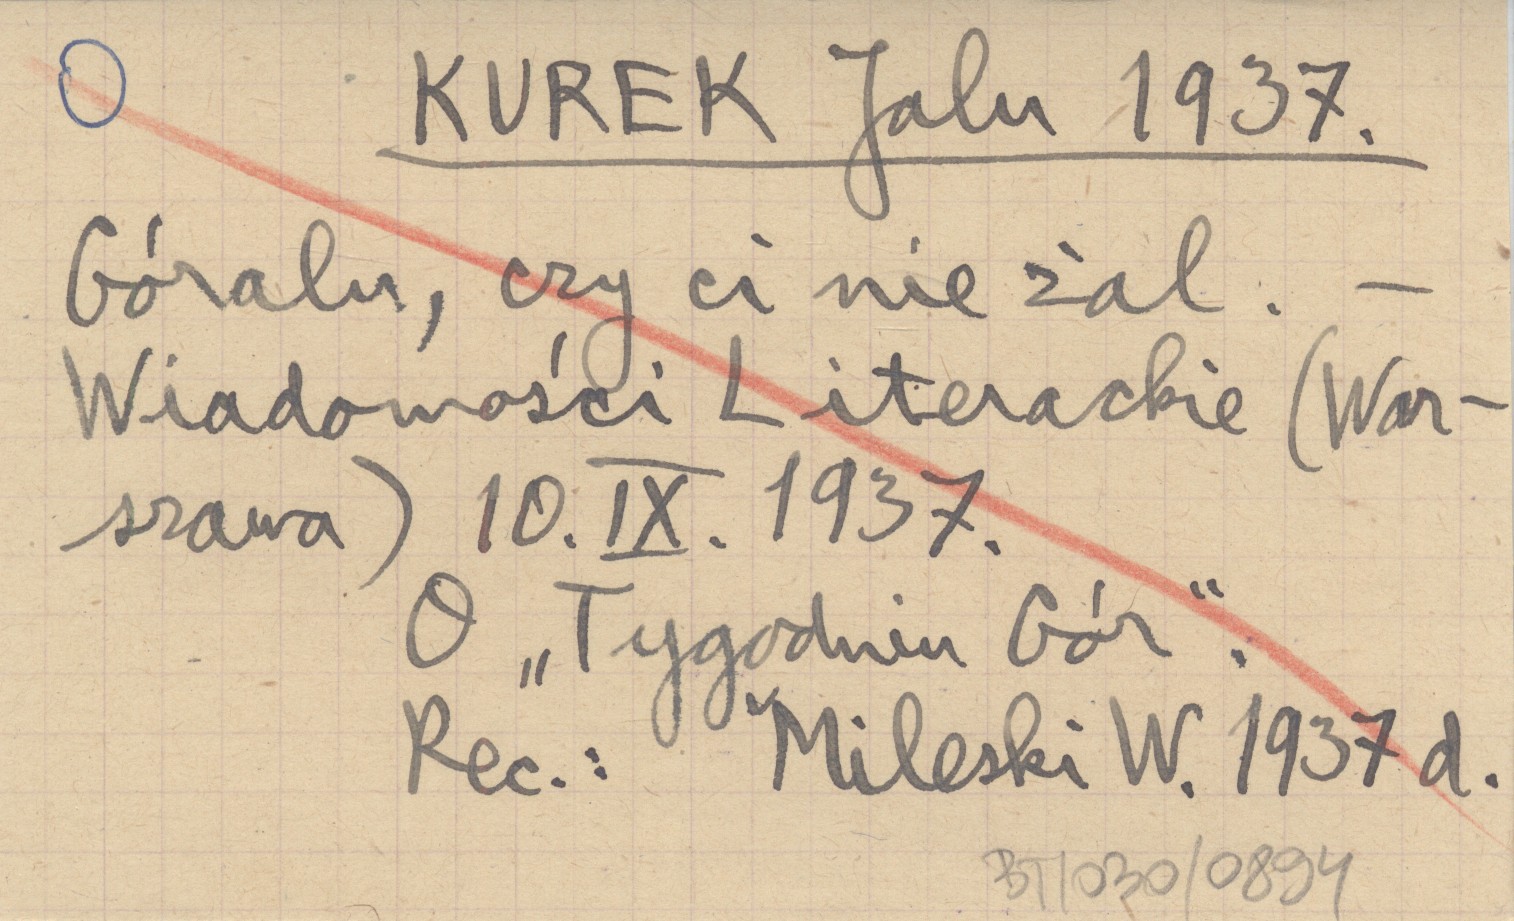 O KUREK Jalu 1937.
Góralu, czy ci nie żal. –
Wiadomości Literackie (War-
szawa) 10. IX. 1937.
O „Tygodniu Gór“.
Rec.: Mileski W. 1937 d.
BT/030/0894